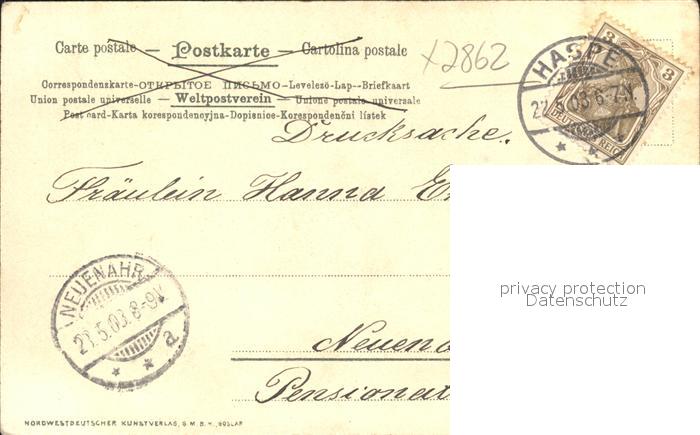 Carte postale — Postkarte — Cartolina postale
Correspondenzkarte-ОТКРЫТОЕ ПИСЬМО-Levelező-Lap-Briefkaart
Union postale universelle — Weltpostverein — Unione postale universale
Post card-Karta korespondencyjna-Dopisnice-Korespondenční lístek
x2862
3 3
DEUTSCHES REICH
HASPE
27.5.03 6-7N.
Drucksache.
Fräulein Hanna
privacy protection
Datenschutz
NEUENAHR
5.03. 8-9V.
a
Neuena
Pensionat
NORDWESTDEUTSCHER KUNSTVERLAG, G.M.B.H., GOSLAR